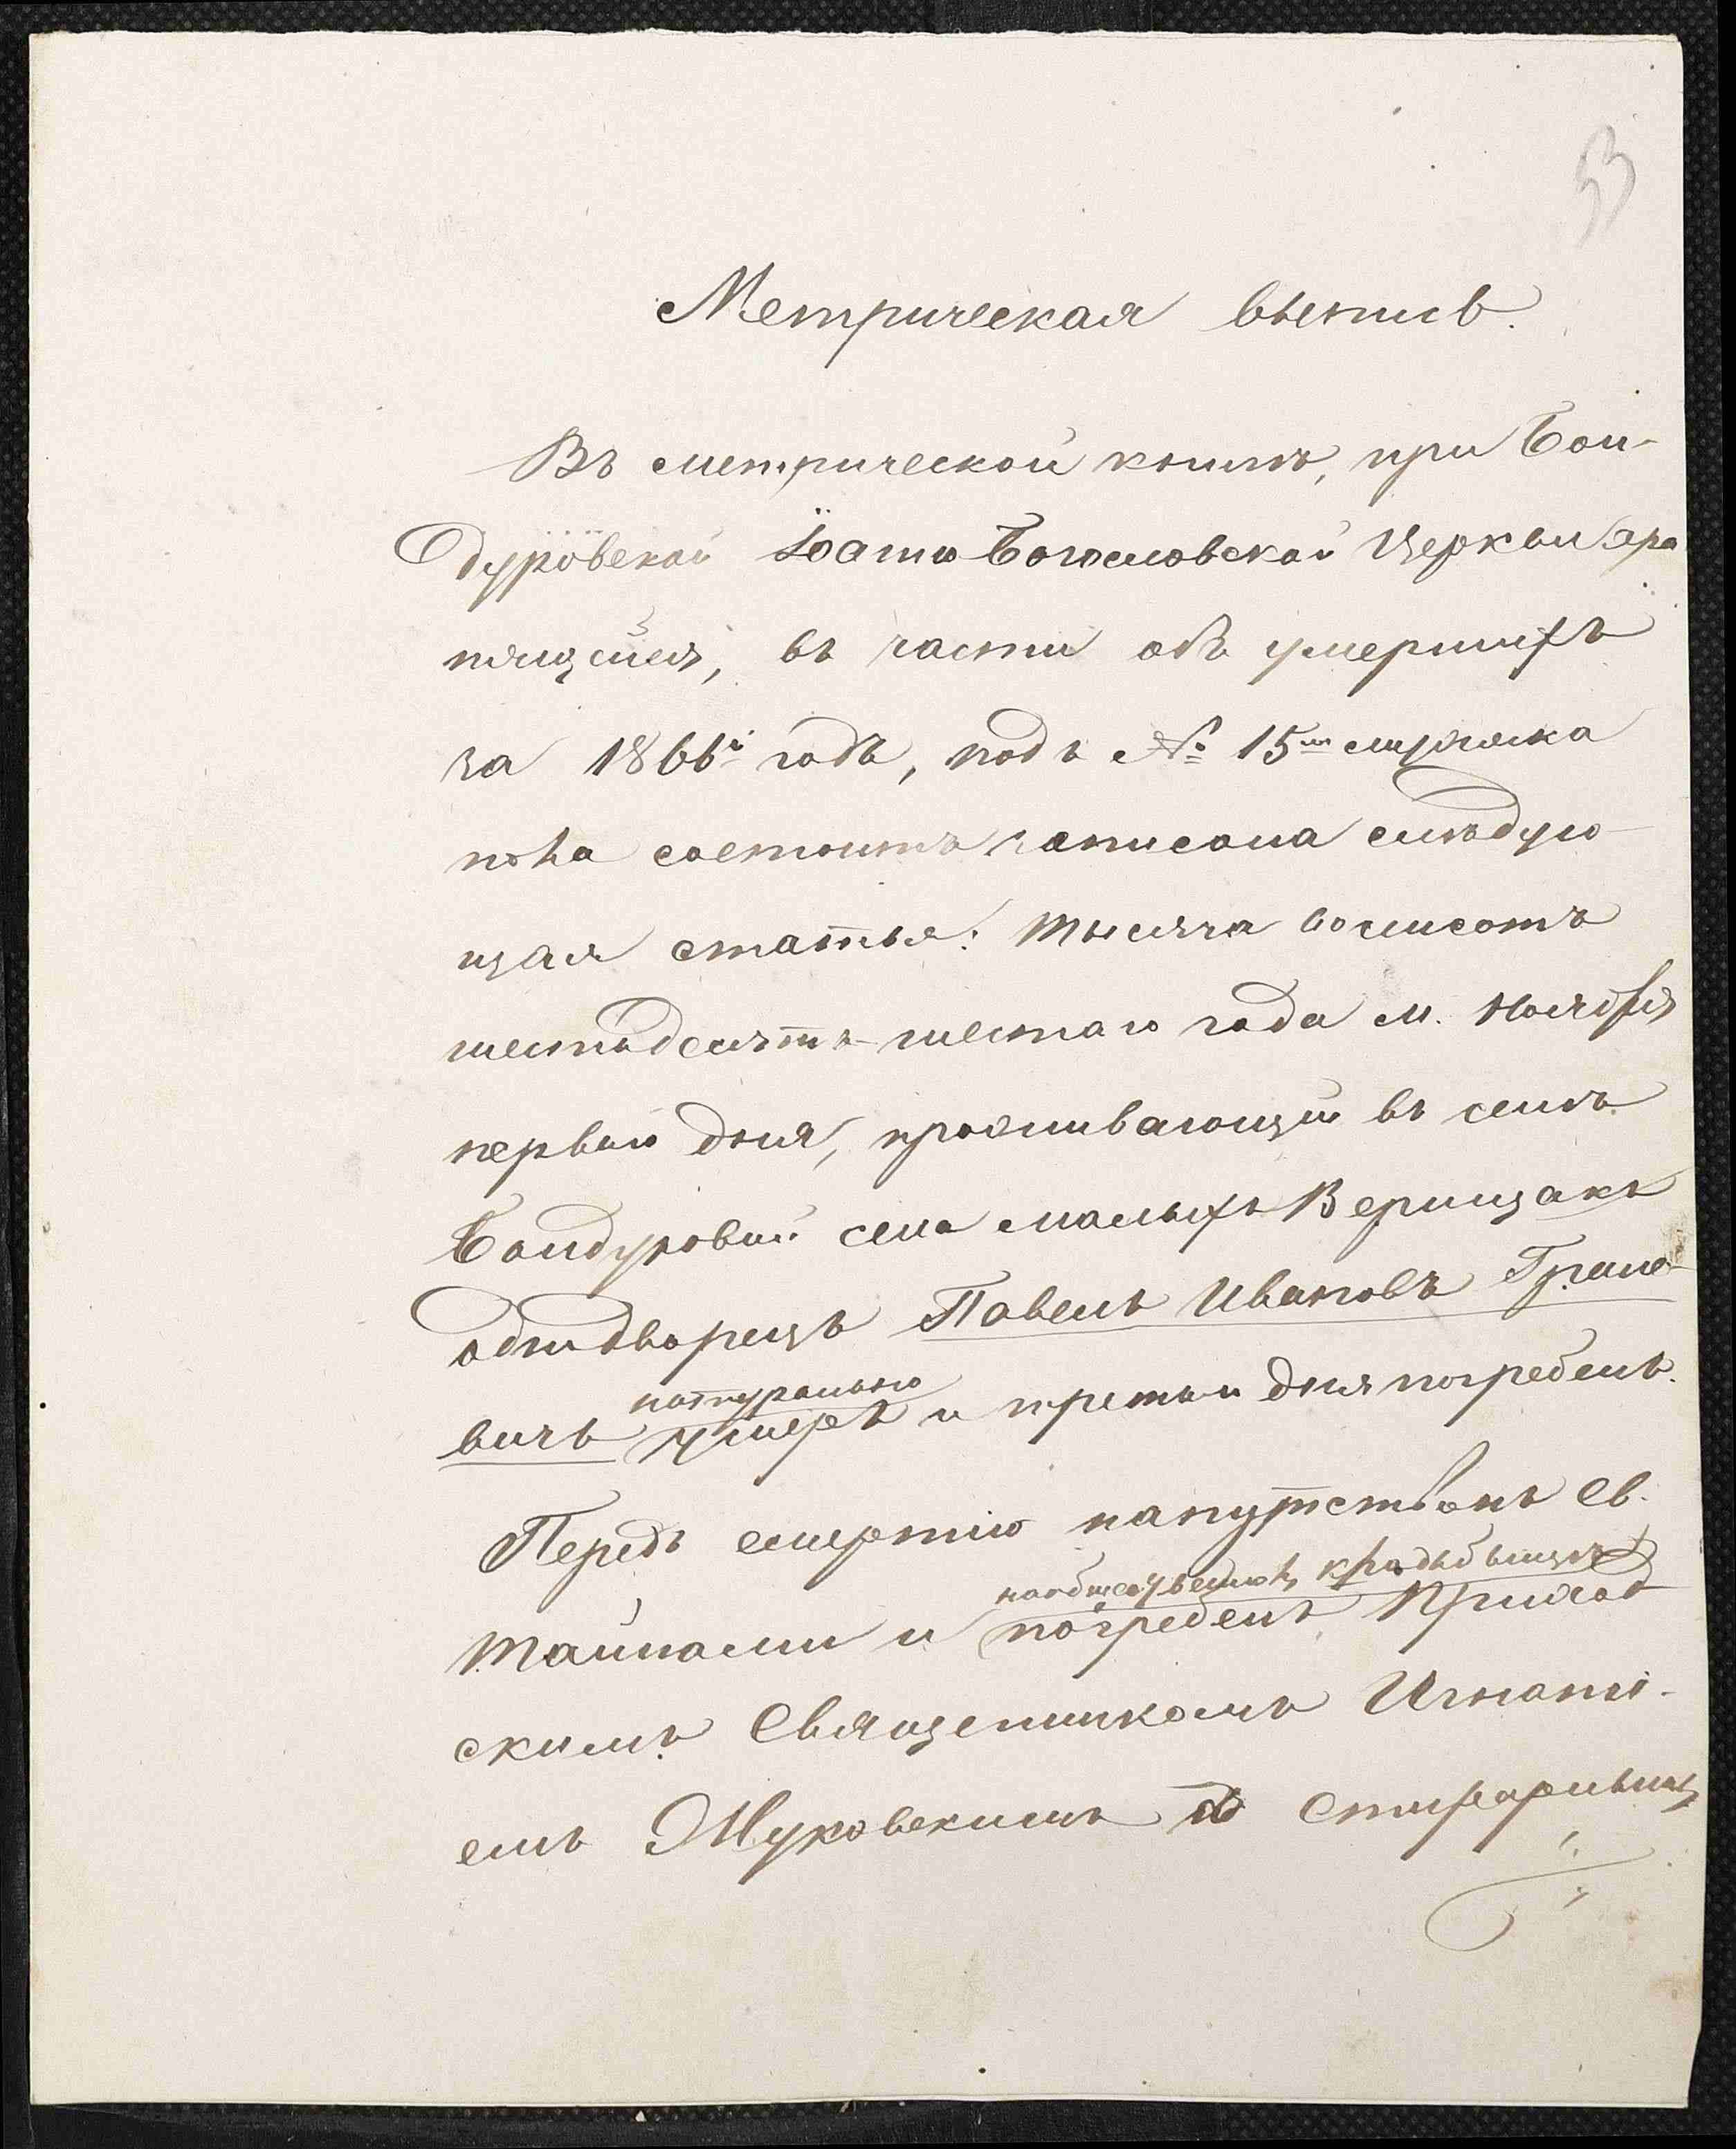 53
Метрическая выпись.
Въ метрической книгѣ, при Бон-
дуровской Іоанно Богословской Церкви хра
нящейся, въ части объ умершихъ
за 1866й годъ, подъ № 15м мужска
пола состоитъ записана слѣдую-
щая статья: Тысяча восмсотъ
шестьдесятъ-шестаго года м. Ноября
перваго дня, проживающій въ селѣ
Бондуровки села малыхъ Верищакъ
однодворецъ Павелъ Ивановъ Грине-
натурально
вичъ умеръ и третьи дня погребенъ.
Передъ смертію напутствонъ Св.
кладбищѣ
Тайнами и погребенъ Приход
скимъ Священникомъ Игнаті-
емъ Жуковскимъ